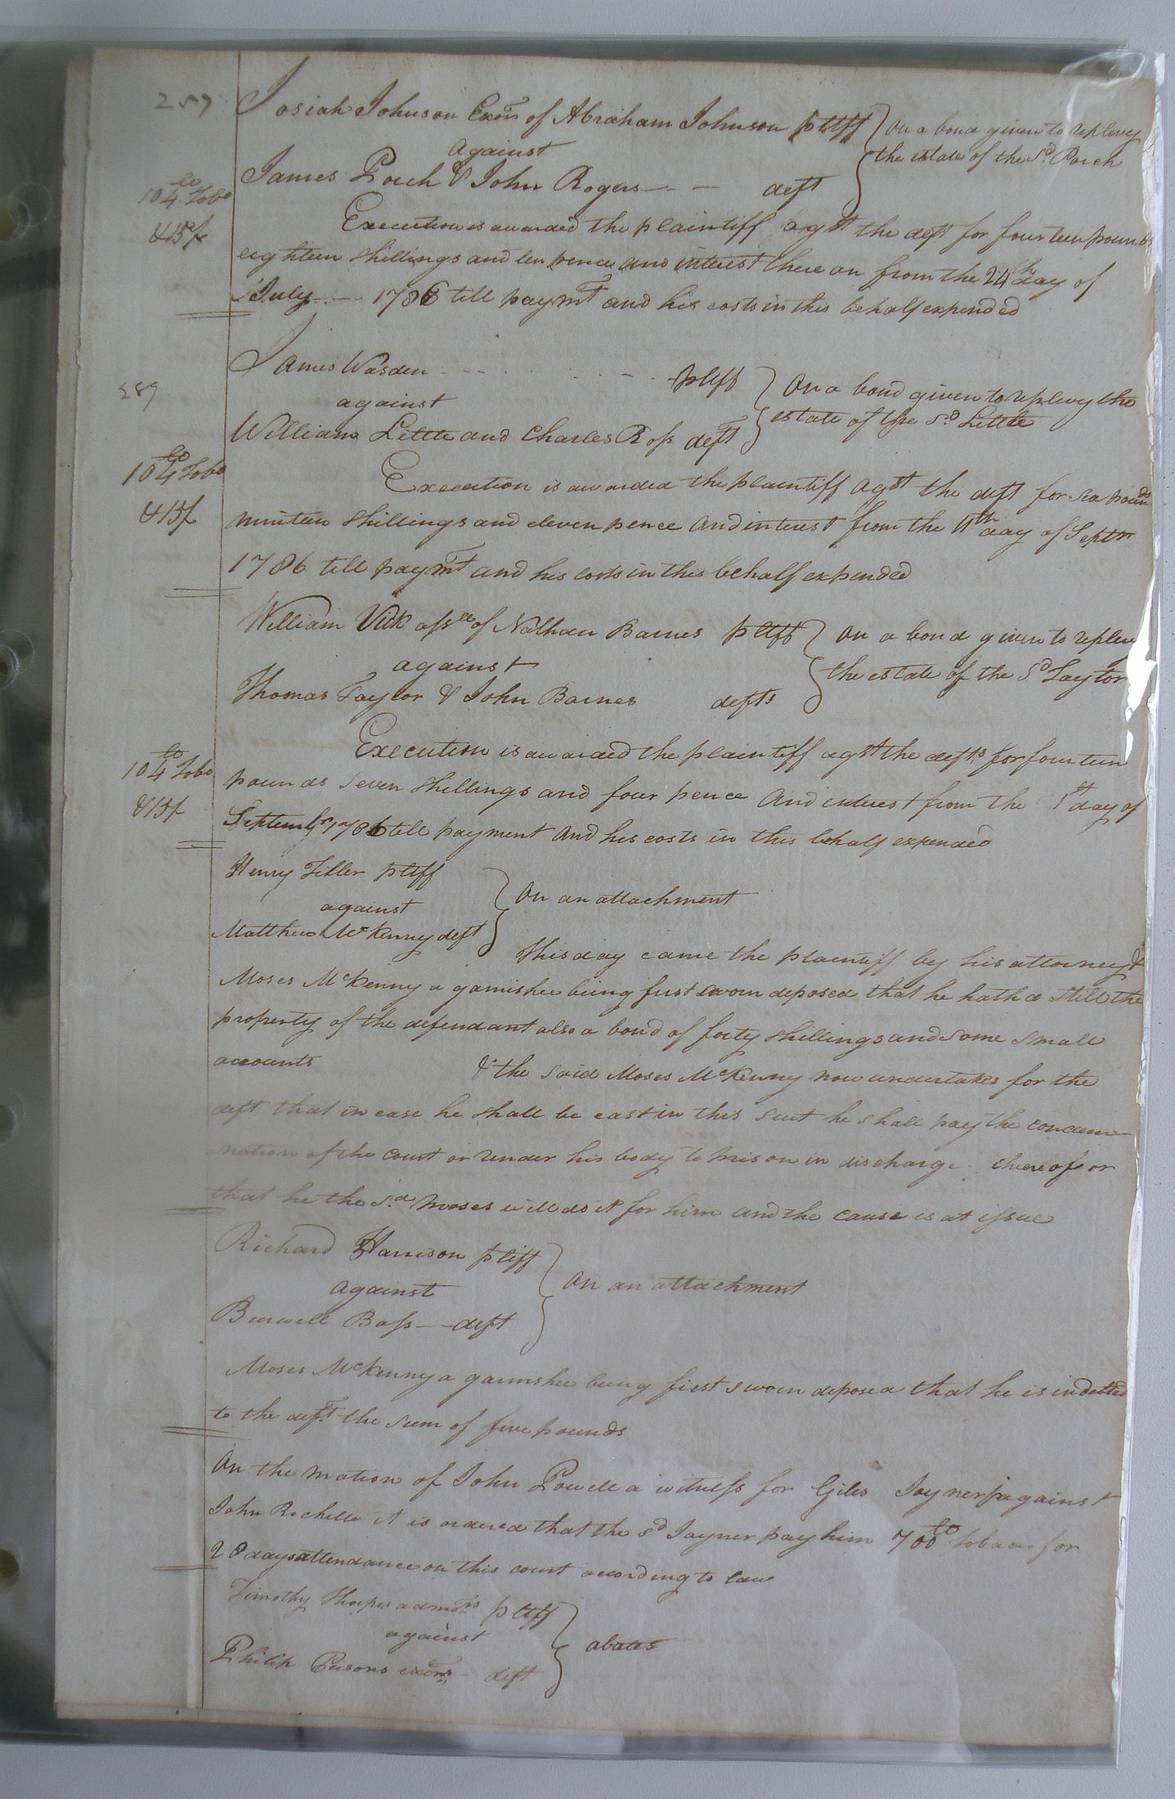 257
Josiah Johnson Exor of Abraham Johnson pltff
against
James Porch & John Rogers deft
on a bond given to replevy
the estate of the sd Porch
104 lb Tobo
&15/
Execution is awarded the plaintiff agst the deft for fourteen pounds
eighteen shillings and ten pence and interest there on from the 24th day of
July 1786 till paymt and his costs in this behalf expended
289
James Wasden pltff
against
William Little and Charles Ross deft
On a bond given to replevy the
estate of the sd Little
104 lb Tobo
&15/
Execution is awarded the plaintiff agst the deft for six pounds
ninteen shillings and eleven pence and interest from the 11th day of Septr
1786 till paymt and his costs in this behalf expended
William Vick assee of Nathan Barnes pltff
against
Thomas Taylor & John Barnes defts
on a bond given to replev
the estate of the sd Taylor
104 lb Tobo
&15/
Execution is awarded the plaintiff agst the defts for fourteen
pounds seven shillings and four pence and interest from the 1st day of
Septembr 1786 till payment and his costs in this behalf expended
Henry Tiller pltff
against
Matthew McKenny deft
On an attachment
This day came the plaintiff by his attorney &
Moses McKenny a garnishee being first sworn deposed that he hath a Still the
property of the defendant also a bond of forty shillings and some small
accounts & the said Moses McKenny now undertakes for the
deft that in case he shall be cast in this suit he shall pay the condem
nation of the court or render his body to prison in discharge thereof or
that he the sd Moses will do it for him and the cause is at issue
Richard Harrison pltff
against
Burwell Bass deft
On an attachment
Moses McKenny a garnishee being first sworn deposed that he is indetted
to the deft the sum of five pounds
On the motion of John Powell a witness for Giles Joyner against
John Rochelle it is ordered that the sd Joyner pay him 700 lb tobacco for
28 days attendance on this court according to law
Timothy Thorpes admors pltff
against
Philip Persons exors deft
abates